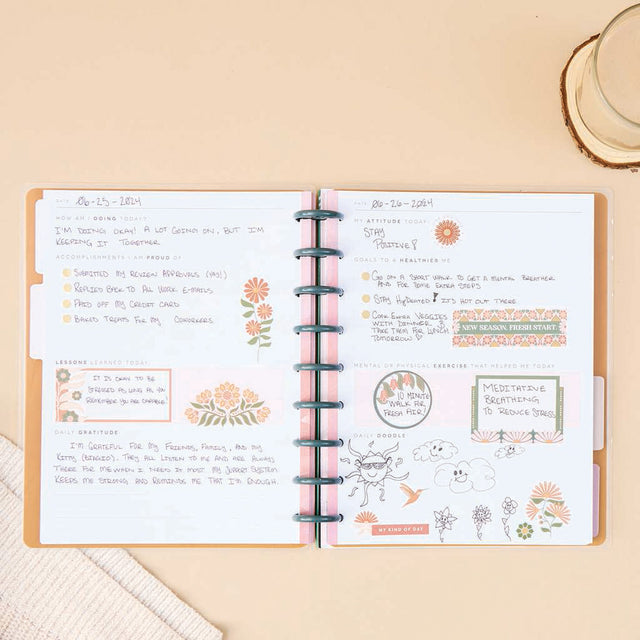 DATE: 06-25-2024
HOW AM I DOING TODAY?
I'M DOING OKAY! A LOT GOING ON, BUT I'M
KEEPING IT TOGETHER
ACCOMPLISHMENTS I AM PROUD OF
SUBMITTED MY REVIEW APPROVALS (YAY!)
REPLIED BACK TO ALL WORK E-MAILS
PAID OFF MY CREDIT CARD
BAKED TREATS FOR MY COWORKERS
LESSONS LEARNED TODAY
IT IS OKAY TO BE
STRESSED AS LONG AS YOU
REMEMBER YOU ARE CAPABLE!
DAILY GRATITUDE
I'M GRATEFUL FOR MY FRIENDS, FAMILY, AND MY
KITTY (BIAGIO). THEY ALL LISTEN TO ME AND ARE ALWAYS
THERE FOR ME WHEN I NEED IT MOST. MY SUPPORT SYSTEM
KEEPS ME STRONG AND REMINDS ME THAT I'M ENOUGH.
DATE: 06-26-2024
MY ATTITUDE TODAY:
STAY
POSITIVE!
GOALS TO A HEALTHIER ME
GO ON A SHORT WALK TO GET A MENTAL BREATHER
AND FOR SOME EXTRA STEPS
STAY HYDRATED! IT'S HOT OUT THERE
COOK EXTRA VEGGIES
WITH DINNER &
TAKE THEM FOR LUNCH
TOMORROW!
NEW SEASON, FRESH START.
MENTAL OR PHYSICAL EXERCISE THAT HELPED ME TODAY
10 MINUTE
WALK FOR
FRESH AIR!
MEDITATIVE
BREATHING
TO REDUCE STRESS
DAILY DOODLE
MY KIND OF DAY